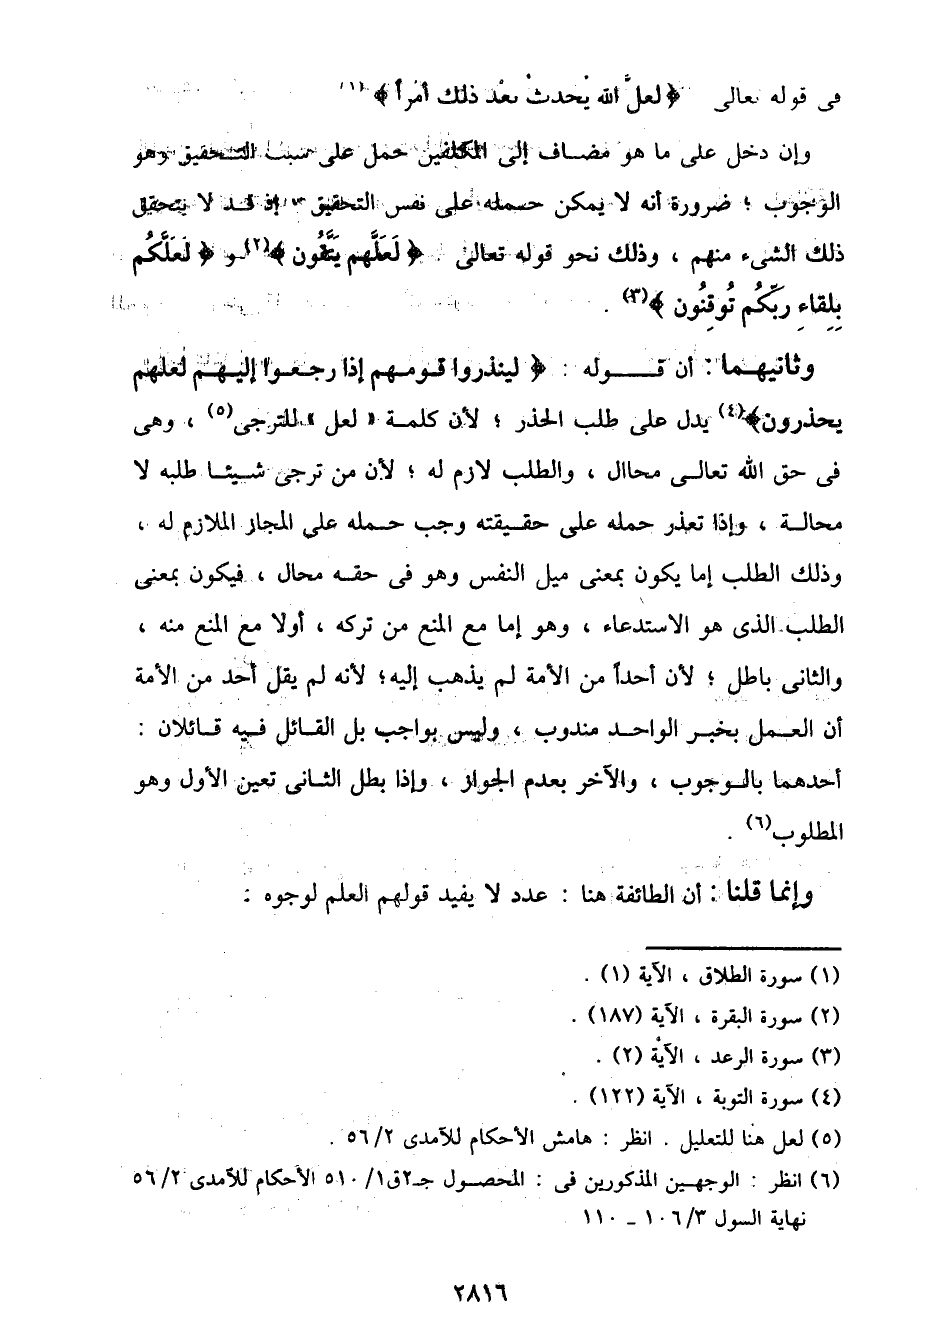 فى قوله تعالى ﴿ لعلَّ الله يُحدثُ بعْد ذلك أمْراً ﴾ (١)
وإن دخل على ما هو مضاف إلى المكلفين حمل على سبب التحقيق وهو
الوجوب ؛ ضرورة أنه لا يمكن حمله على نفس التحقيق ، إذ قد لا يتحقق
ذلك الشىء منهم ، وذلك نحو قوله تعالى . ﴿ لَعَلَّهم يَتَّقُون ﴾(٢) و ﴿ لَعلَّكُم
بِلِقاءِ ربِّكُم تُوقِنُون ﴾(٣) .
وثانيهما : أن قوله : ﴿ لينذروا قومهم إذا رجعوا إليهم لعلهم
يحذرون﴾(٤) يدل على طلب الحذر ؛ لأن كلمة « لعل » للترجى(٥) ، وهى
فى حق الله تعالى محاال ، والطلب لازم له ؛ لأن من ترجى شيئا طلبه لا
محالة ، وإذا تعذر حمله على حقيقته وجب حمله على المجاز الملازم له ،
وذلك الطلب إما يكون بمعنى ميل النفس وهو فى حقه محال ، فيكون بمعنى
الطلب الذى هو الاستدعاء ، وهو إما مع المنع من تركه ، أولا مع المنع منه ،
والثانى باطل ؛ لأن أحداً من الأمة لم يذهب إليه؛ لأنه لم يقل أحد من الأمة
أن العمل بخبر الواحد مندوب ، وليس بواجب بل القائل فيه قائلان :
أحدهما بالوجوب ، والآخر بعدم الجواز ، وإذا بطل الثانى تعين الأول وهو
المطلوب(٦) .
وإنما قلنا : أن الطائفة هنا : عدد لا يفيد قولهم العلم لوجوه :
(١) سورة الطلاق ، الآية (١) .
(٢) سورة البقرة ، الآية (١٨٧) .
(٣) سورة الرعد ، الآية (٢) .
(٤) سورة التوبة ، الآية (١٢٢) .
(٥) لعل هنا للتعليل . انظر : هامش الأحكام للآمدى ٥٦/٢ .
(٦) انظر : الوجهين المذكورين فى : المحصول جـ٢ق٥١٠/١ الأحكام للآمدى ٥٦/٢
نهاية السول ١٠٦/٣ - ١١٠
٢٨١٦